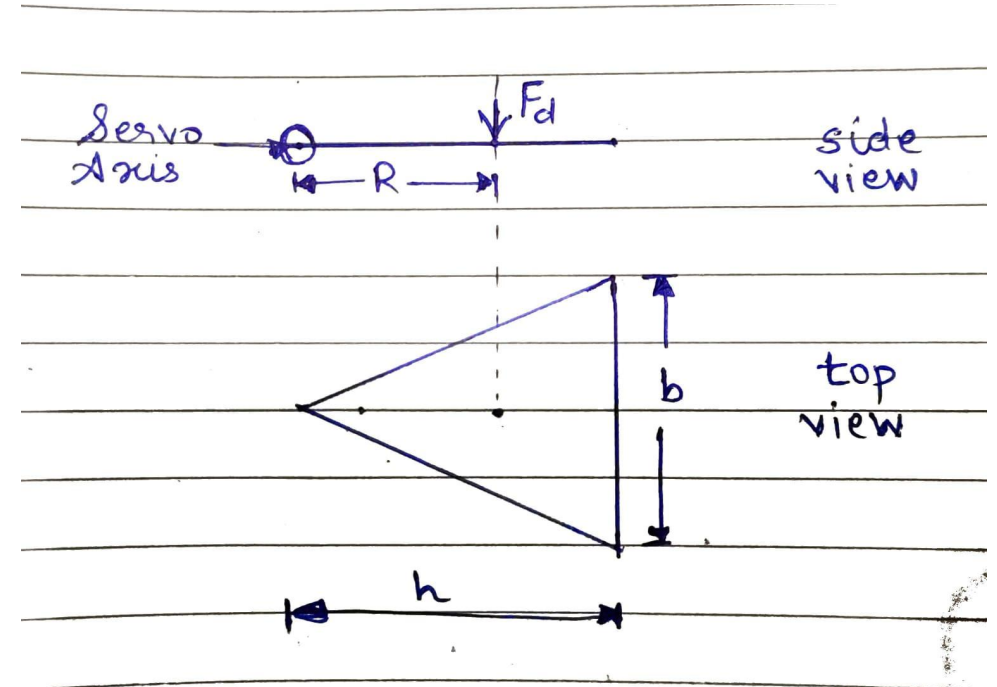 Servo
Axis
Fd
R
side
view
b
top
view
h